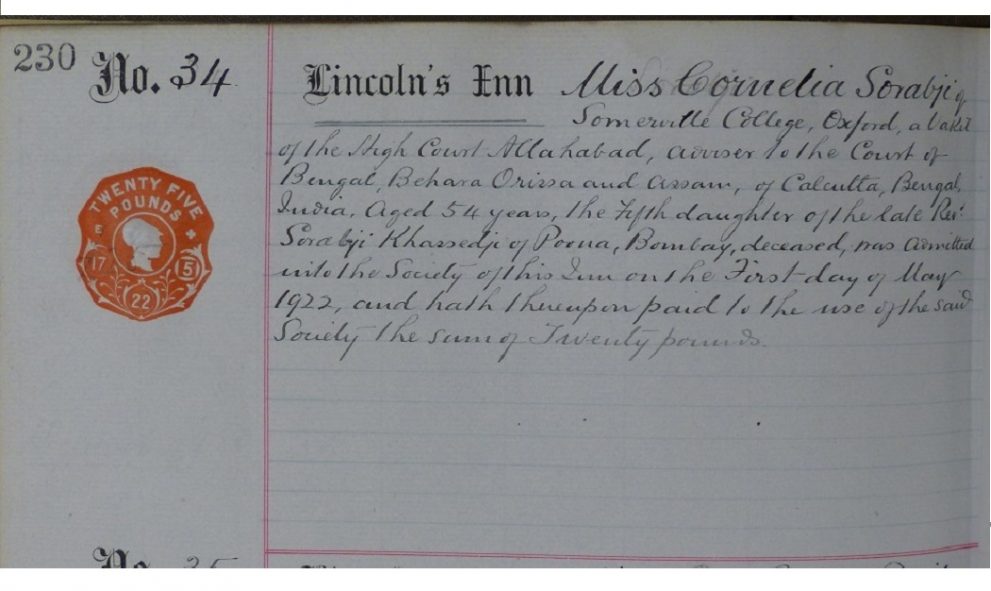 230
No. 34
Lincoln's Inn Miss Cornelia Sorabji of
Somerville College, Oxford, a Vakil
of the High Court Allahabad, adviser to the Court of
Bengal, Behara Orissa and Assam, of Calcutta, Bengal,
India, Aged 54 years, the fifth daughter of the late Revd
Sorabji Kharsedji of Poona, Bombay, deceased, was admitted
into the Society of this Inn on the First day of May
1922, and hath thereupon paid to the use of the said
Society the sum of Twenty pounds.
TWENTY FIVE
POUNDS
E
17 5
22
No. 35